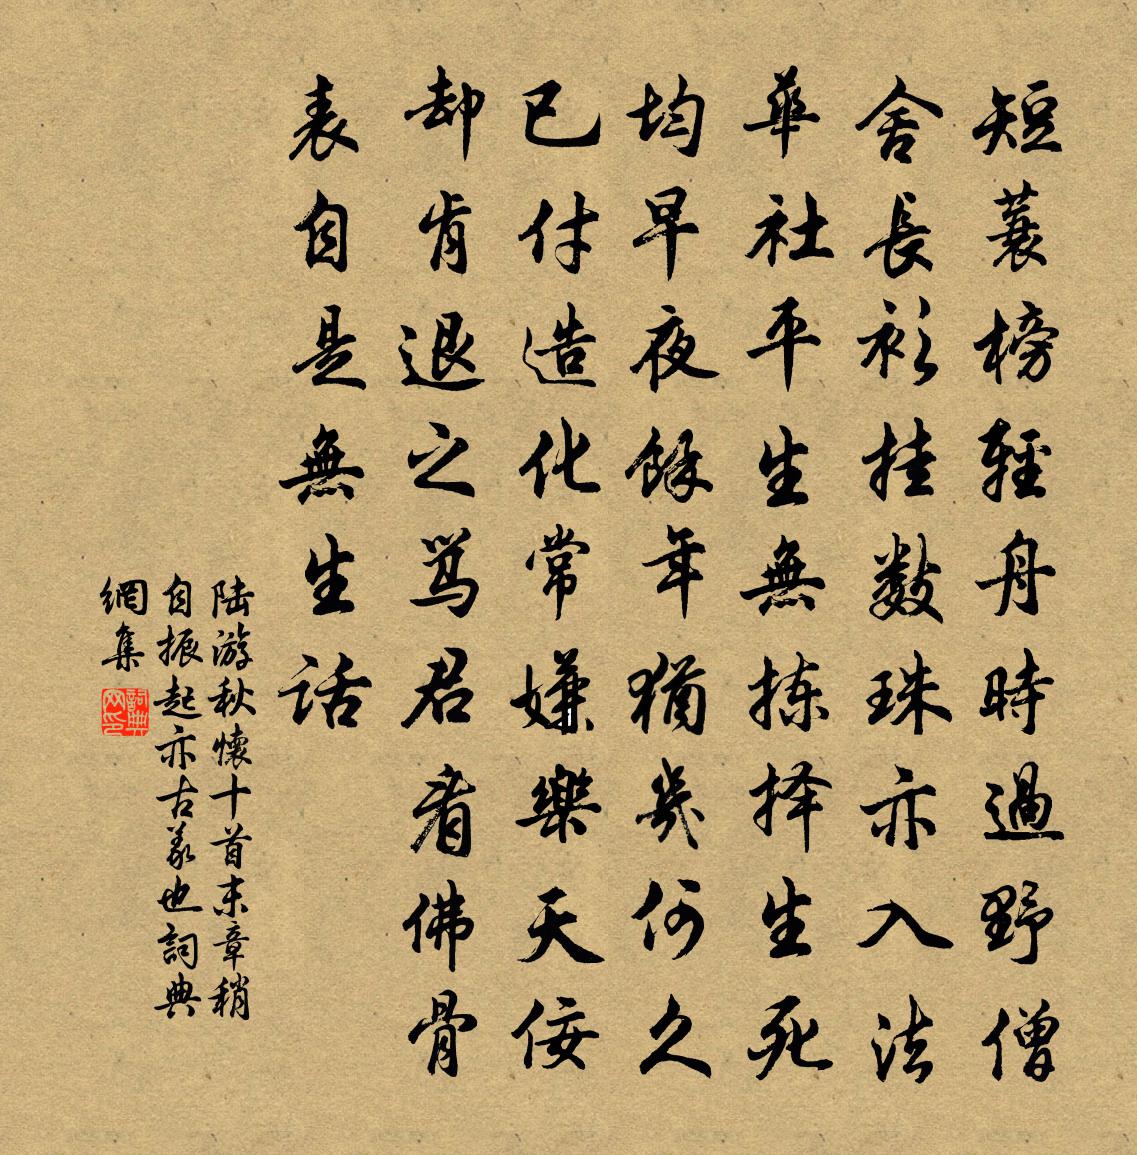 短蓑榜輕舟時過野僧
舍長衫挂數珠亦入法
華社平生無拣择生死
均早夜餘年猶幾何久
已付造化常嫌樂天佞
却肯退之骂君看佛骨
表自是無生話
陆游秋懷十首末章稍
自振起亦古義也詞典
網集
詞典
网印